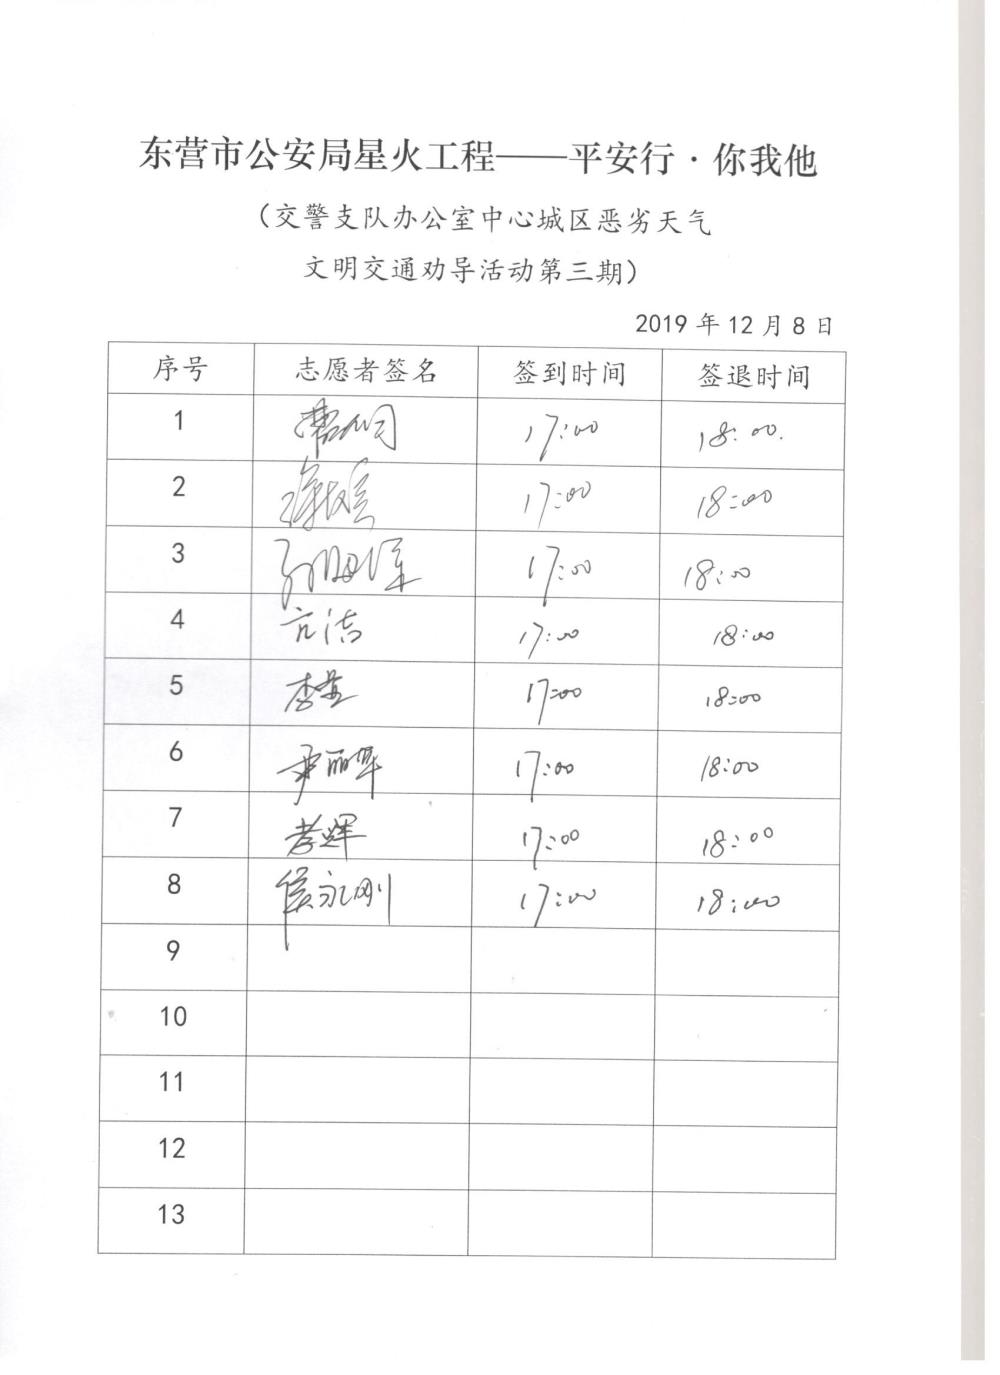 东营市公安局星火工程——平安行·你我他
（交警支队办公室中心城区恶劣天气
文明交通劝导活动第三期）
2019年12月8日
序号 志愿者签名 签到时间 签退时间
1 17:00 18:00.
2 17:00 18:00
3 17:00 18:00
4 亢洁 17:00 18:00
5 17:00 18:00
6 尹丽华 17:00 18:00
7 17:00 18:00
8 侯永刚 17:00 18:00
9
10
11
12
13